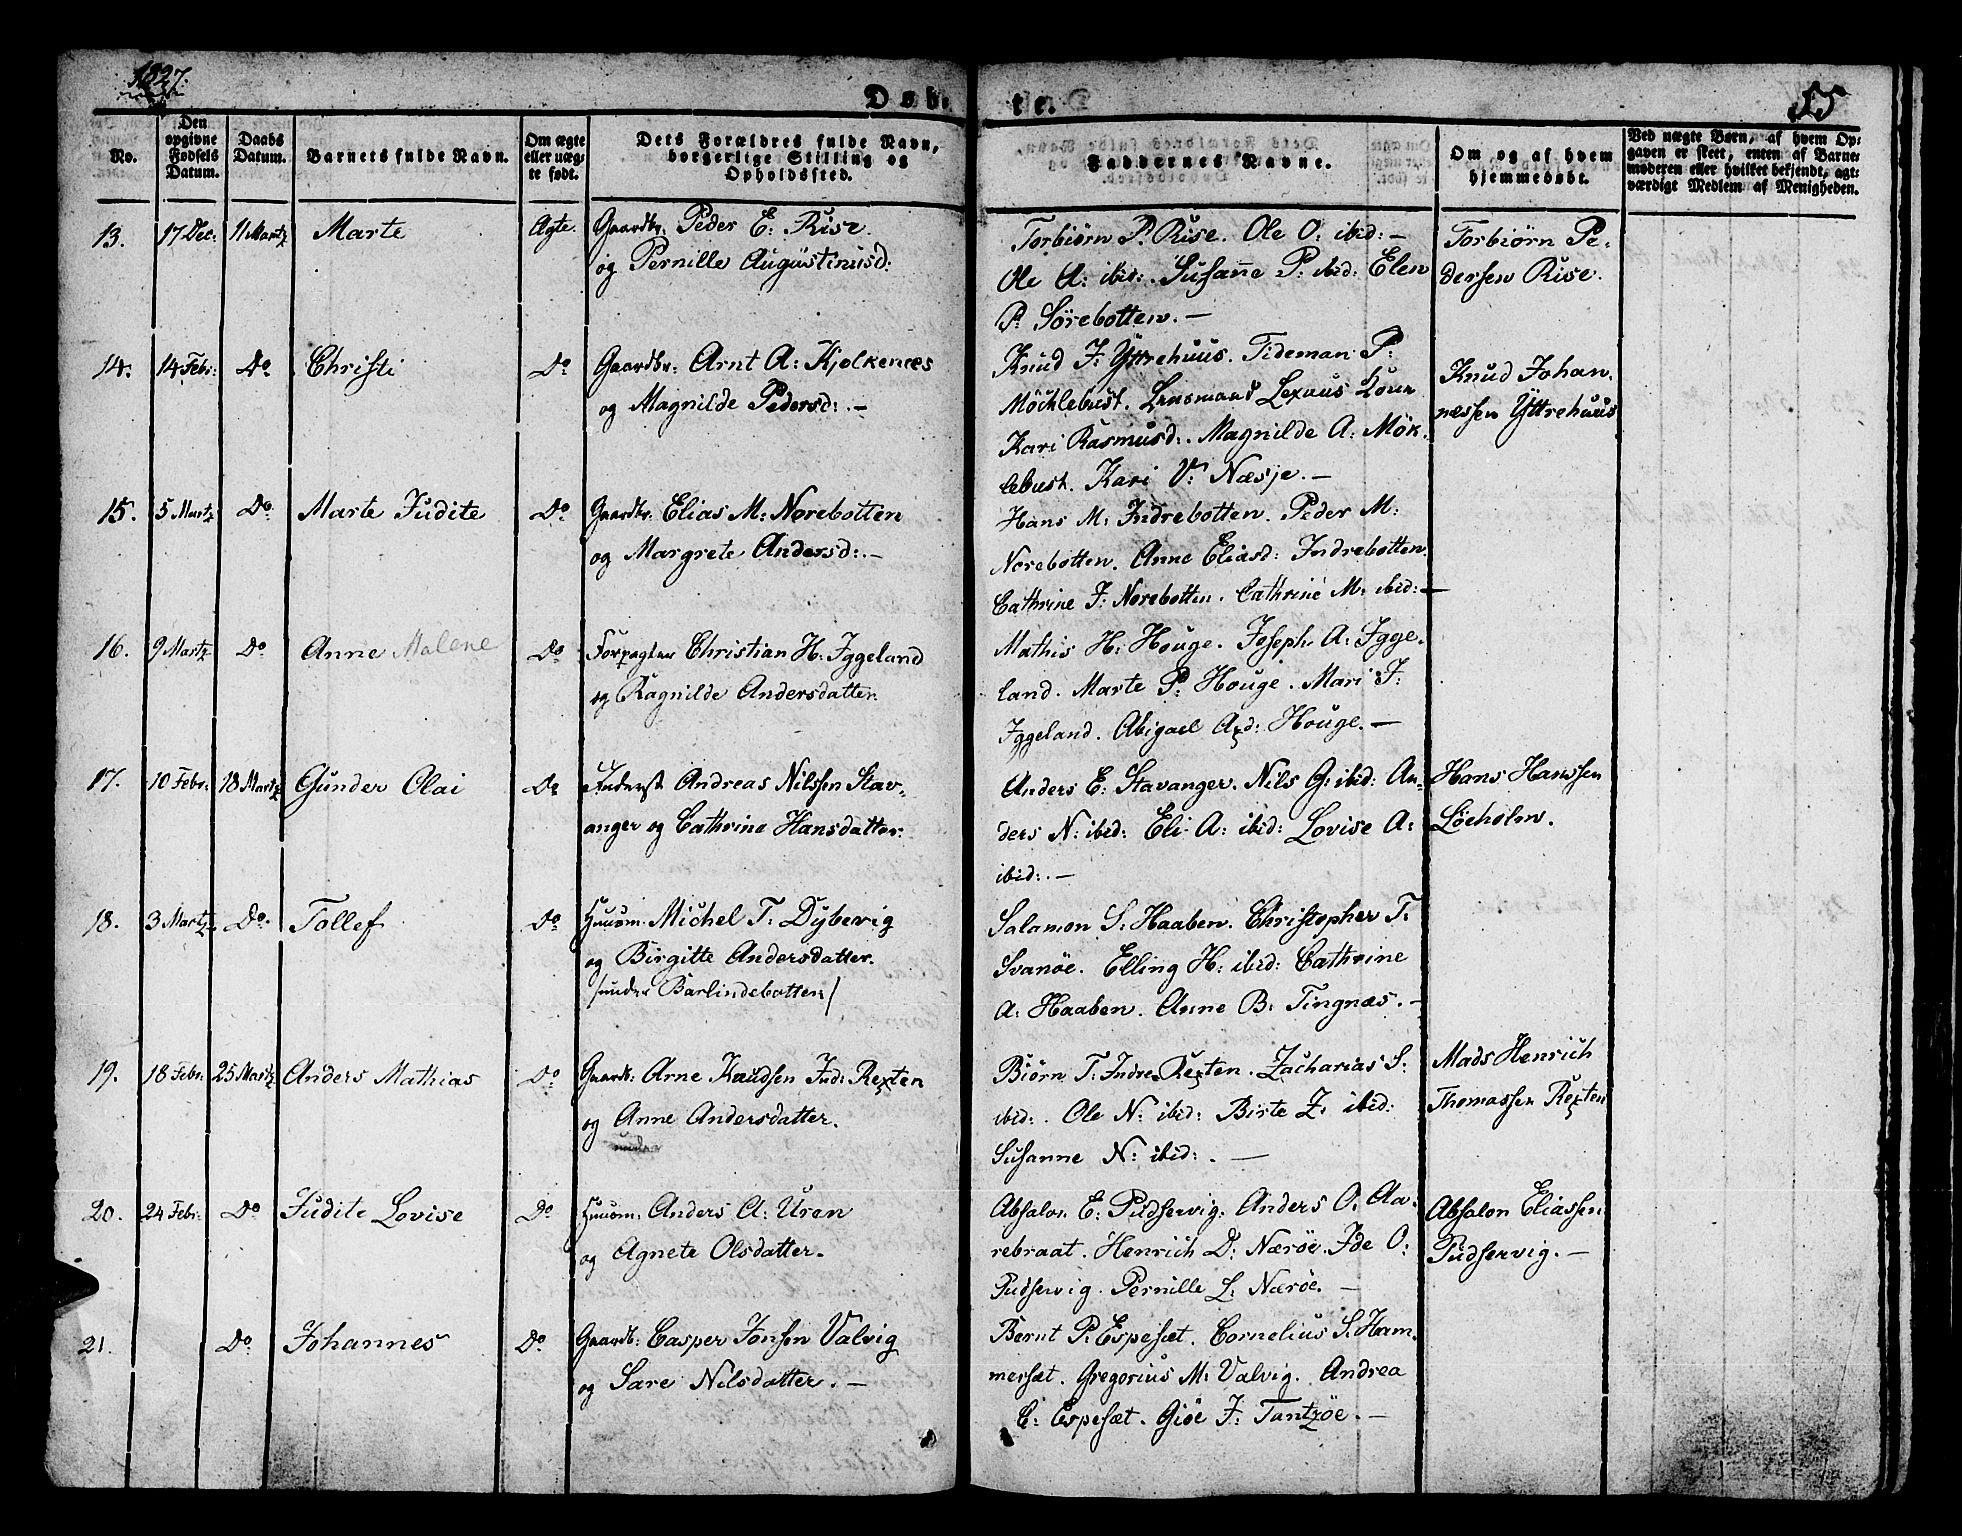 1827.
Døb-
te.
55
No.
Den opgivne Fødsels Datum.
Daabs Datum.
Barnets fulde Navn.
Om ægte eller uæg- te født.
Dets Forældres fulde Navn, borgerlige Stilling og Opholdssted.
Faddernes Navne.
Om og af hvem hjemmedøbt.
Ved uægte Børn, af hvem Op- gaven er skeet, enten af Barne- moderen eller hvilket bekjendt, agt- værdigt Medlem af Menigheden.
13. 17 Dec: 11 Martz Marte Ægte. Gaardbr. Peder E: Rise
og Pernille Augustinusd:
Torbiørn P. Rise. Ole O: ibid: —
Ole A: ibid: Susanne P: ibid: Elen
P: Sørebotten. —
Torbiørn Pe-
dersen Rise.
14. 14 Febr: Do Christi Do Gaardbr: Arnt A: Kjolkenæs
og Magnilde Pedersd: —
Knud J: Yttrehuus. Tideman P:
Möcklebust. Lensmand Lexaus Kone
Kari Rasmusd: Magnilde A: Mök-
lebust. Kari V: Næsje. —
Knud Johan-
nessen Yttrehuus
15. 5 Martz Do Marte Judite Do Gaardbr. Elias M: Norebotten
og Margrete Andersd: —
Hans M: Indrebotten. Peder M:
Norebotten. Anne Eliasd: Indrebotten.
Cathrine J: Norebotten. Cathrine M: ibid: —
16. 9 Martz Do Anne Malene Do Forpagter Christian H: Iggeland
og Ragnilde Andersdatter.
Mathis H: Houge. Joseph A: Igge-
land. Marte P: Houge. Mari J:
Iggeland. Abigael Axd: Houge. —
17. 10 Febr: 18 Martz Gunder Olai Do Inderst Andreas Nilssen Stav-
anger og Cathrine Hansdatter.
Anders E: Stavanger. Nils G: ibid: An-
ders N: ibid: Eli A: ibid: Lovise A:
ibid: —
Hans Hanssen
Löeholm.
18. 3 Martz Do. Tollef Do Huusm. Michel T: Dybevig
og Birgitte Andersdatter.
/under Barlindebotten/
Salamon S: Haaben. Christopher T:
Svanöe. Elling H: ibid: Cathrine
A: Haaben. Anne B: Tingnæs. —
19. 18 Febr: 25 Martz Anders Mathias Do Gaardb: Arne Knudsen Ind: Rexten
og Anne Andersdatter.
Biörn T: Indre Rexten. Zacharias S:
ibid: Ole N: ibid: Birte Z: ibid:
Susanne N: ibid: —
Mads Henrich
Thomassen Rexten
20. 24 Febr: Do Judite Lovise Do Huusm: Anders A: Uren
og Agnete Olsdatter.
Absalon E: Pudservig. Anders O. Aa-
rebraat. Henrich D: Nærøe. Ide O:
Pudservig. Pernille L: Nærøe. —
Absalon Eliassen
Pudservig. —
21. Do Johannes Do Gaardb: Casper Jonsen Valvig
og Sare Nilsdatter. —
Bernt P: Espesæt. Cornelius S: Ham-
mersæt. Gregorius M: Valvig. Andrea
E: Espesæt. Giöe J: Tantzöe. —